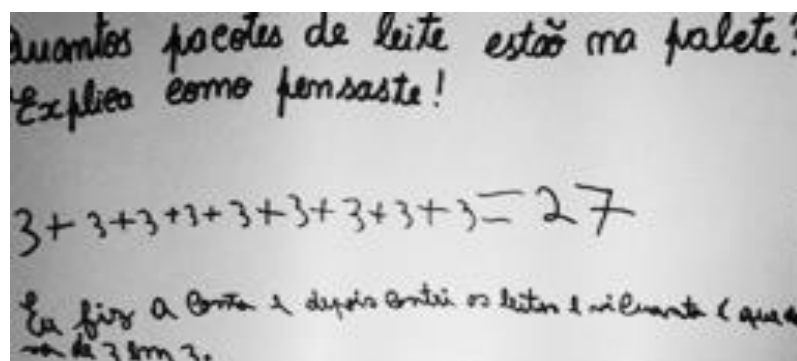 Quantos pacotes de leite estão na palete?
Explica como pensaste!
3+3+3+3+3+3+3+3+3=27
Eu fiz a conta e depois contei os leites e vi quanto é que
de 3 em 3.